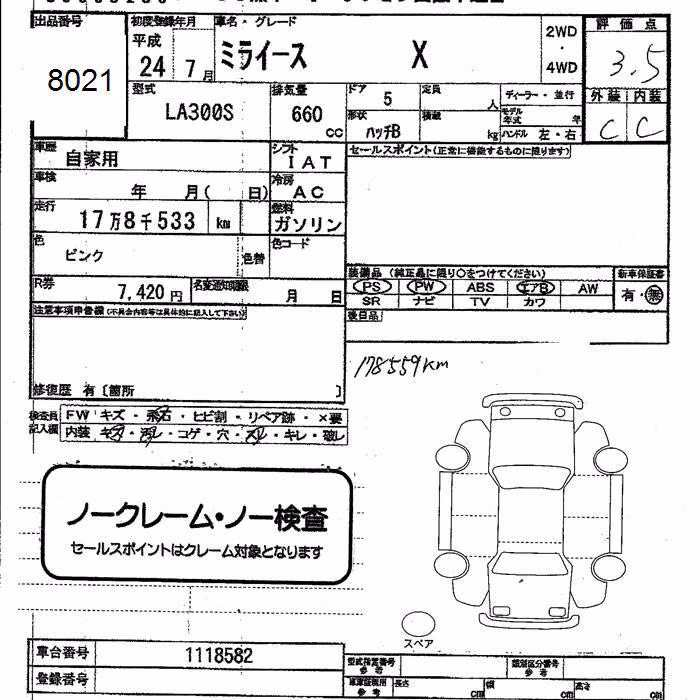 出品番号
8021
初度登録年月
平成
24 7月
車名・グレード
ミライース X
2WD
・
4WD
評価点
3.5
外装 内装
C C
型式
LA300S
排気量
660
CC
ドア
5
定員
人
ディーラー・並行
モデル年式 年
形状
ハッチB
積載
kg
ハンドル 左・右
車歴
自家用
シフト
IAT
セールスポイント(正常に機能するものに限ります)
車検
年 月( 日)
冷房
AC
走行
17万8千533 km
燃料
ガソリン
色
ピンク
色替
色コード
R券
7,420円
名変通知期限
月 日
装備品 (純正品に限り○をつけてください)
新車保証書
PS PW ABS エアB AW
SR ナビ TV カワ
有・無
注意事項申告欄(不具合内容等は具体的に記入して下さい)
後日品
178559KM
修復歴 有〔箇所 〕
検査員記入欄
FW キズ・飛石・ヒビ割・リペア跡・×要
内装 キズ・汚レ・コゲ・穴・スレ・キレ・破レ
ノークレーム・ノー検査
セールスポイントはクレーム対象となります
スペア
車台番号
1118582
登録番号
型式指定番号
参考
類別区分番号
参考
車庫証明用
参考
長さ cm
幅 cm
高さ cm